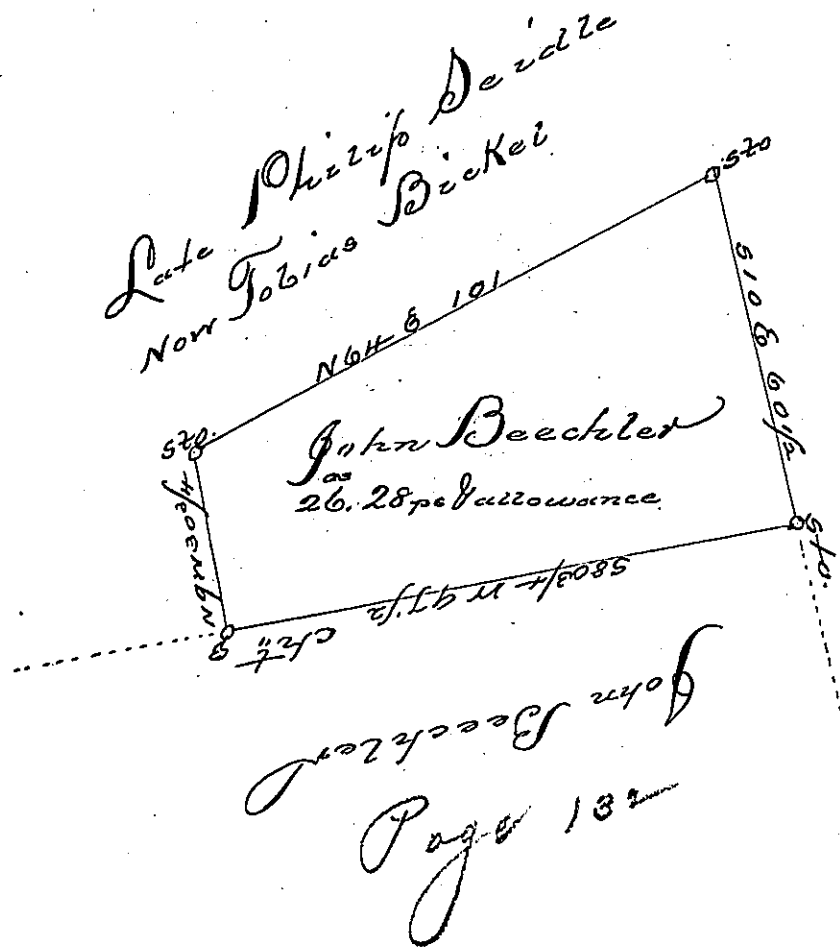 Late Philip Seidle
Now Tobias Bickel
N 64 E 101
S 10 E 60 1/2
sto
sto.
John Beechler
as
26. 28 ps & allowance
N 9 W 30 3/4
S 80 3/4 W 97 1/2
sto.
John Beechler
Page 132